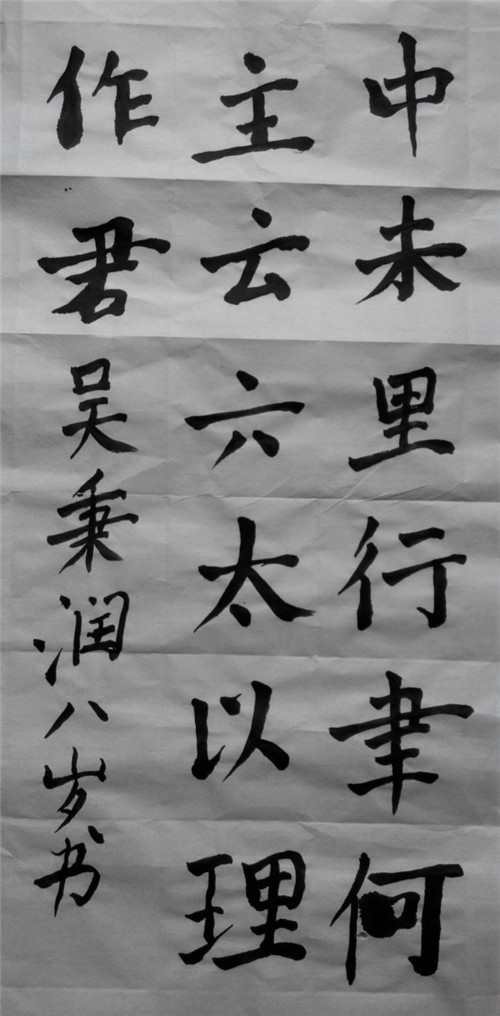 中未里行聿何
主云六太以理
作君吴秉润八岁书